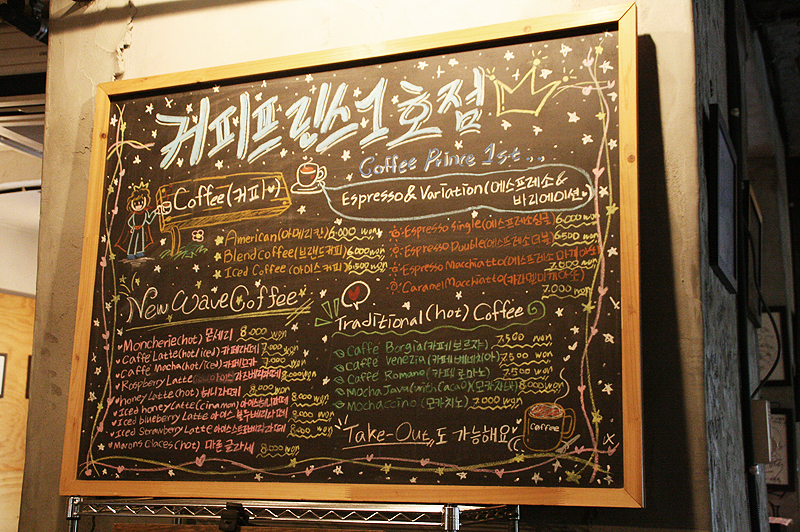 커피프린스 1호점
Coffee Prince 1st..
Coffee (커피♥)
American (아메리칸) 6,000 won
Blend Coffee (브랜드커피) 6,000 won
Iced Coffee (아이스커피) 6,500 won
Espresso & Variation (에스프레소 &
바리에이션)
Espresso Single (에스프레소싱글) 6,000 won
Espresso Double (에스프레소더블) 6,500 won
Espresso Macchiatto (에스프레소마끼아또) 7,000 won
Caramel Macchiatto (카라멜마끼아또)
7,000 won
New Wave Coffee
♥Moncherie (hot) 몬쉐리 8,000 won
♥Caffé Latte (hot/iced) 카페라떼 7,000 won
♥Caffé Mocha (hot/iced) 카페모카 7,000 won
♥Raspberry Latte 라즈베리라떼
♥honey Latte (hot) 허니라떼 8,000 won
♥Iced honey Latte (cinnamon) 아이스허니라떼 8,000 won
♥Iced blueberry Latte 아이스블루베리라떼 8,000 won
♥Iced Strawberry Latte 아이스스트로베리라떼 8,000 won
♥Marons Glaces (hot) 마론글라세 8,000 won
Traditional (hot) Coffee
Caffé Borgia (카페보르자) 7,500 won
Caffé Venezia (카페베네치아) 7,500 won
Caffé Romano (카페로마노) 7,500 won
Mocha Java (with Cacao) (모카자바) 8,000 won
Mochaccino (모카치노) 7,000 won
"Take-Out"도 가능해요♥
coffee